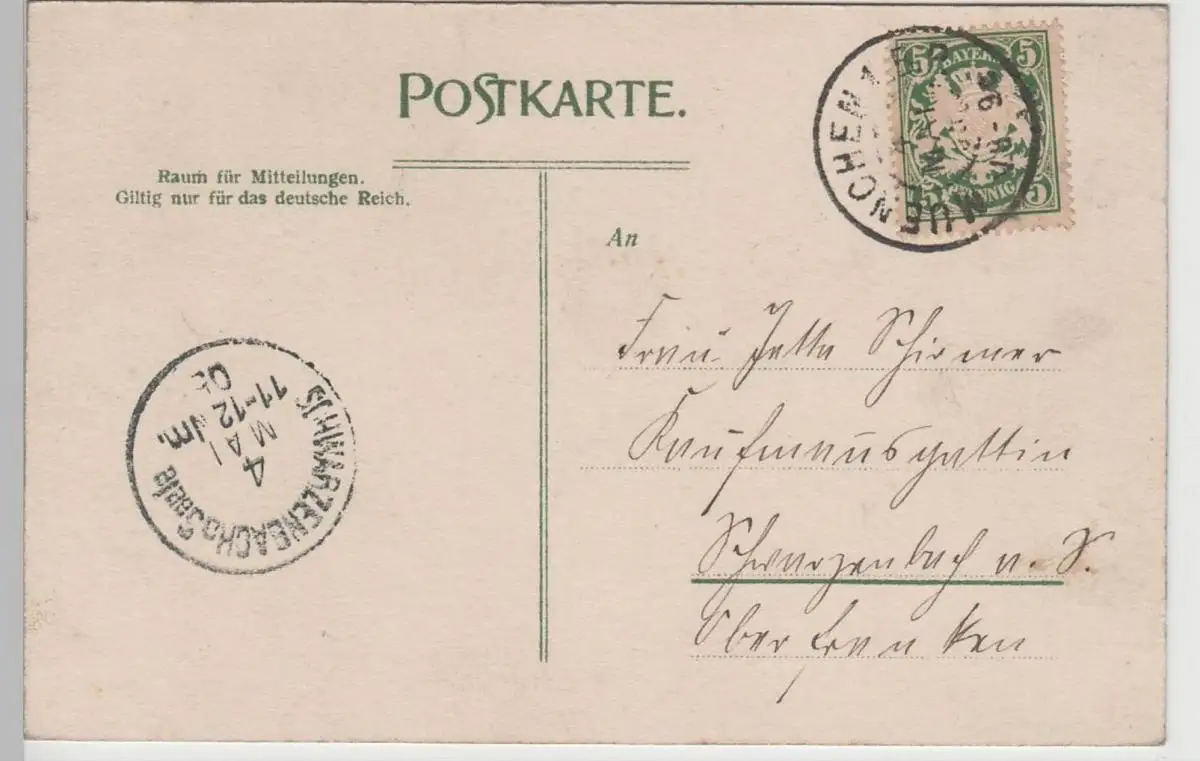 POSTKARTE.
Raum für Mitteilungen.
Giltig nur für das deutsche Reich.
An
MUENCHEN 1. B.P.
4 MAI
5 BAYERN 5
5 PFENNIG 5
Frau Jette Schirmer
Kaufmannsgattin
Schwarzenbach a. S.
Oberfranken
SCHWARZENBACH a Saale
4
MAI
11-12 Nm.